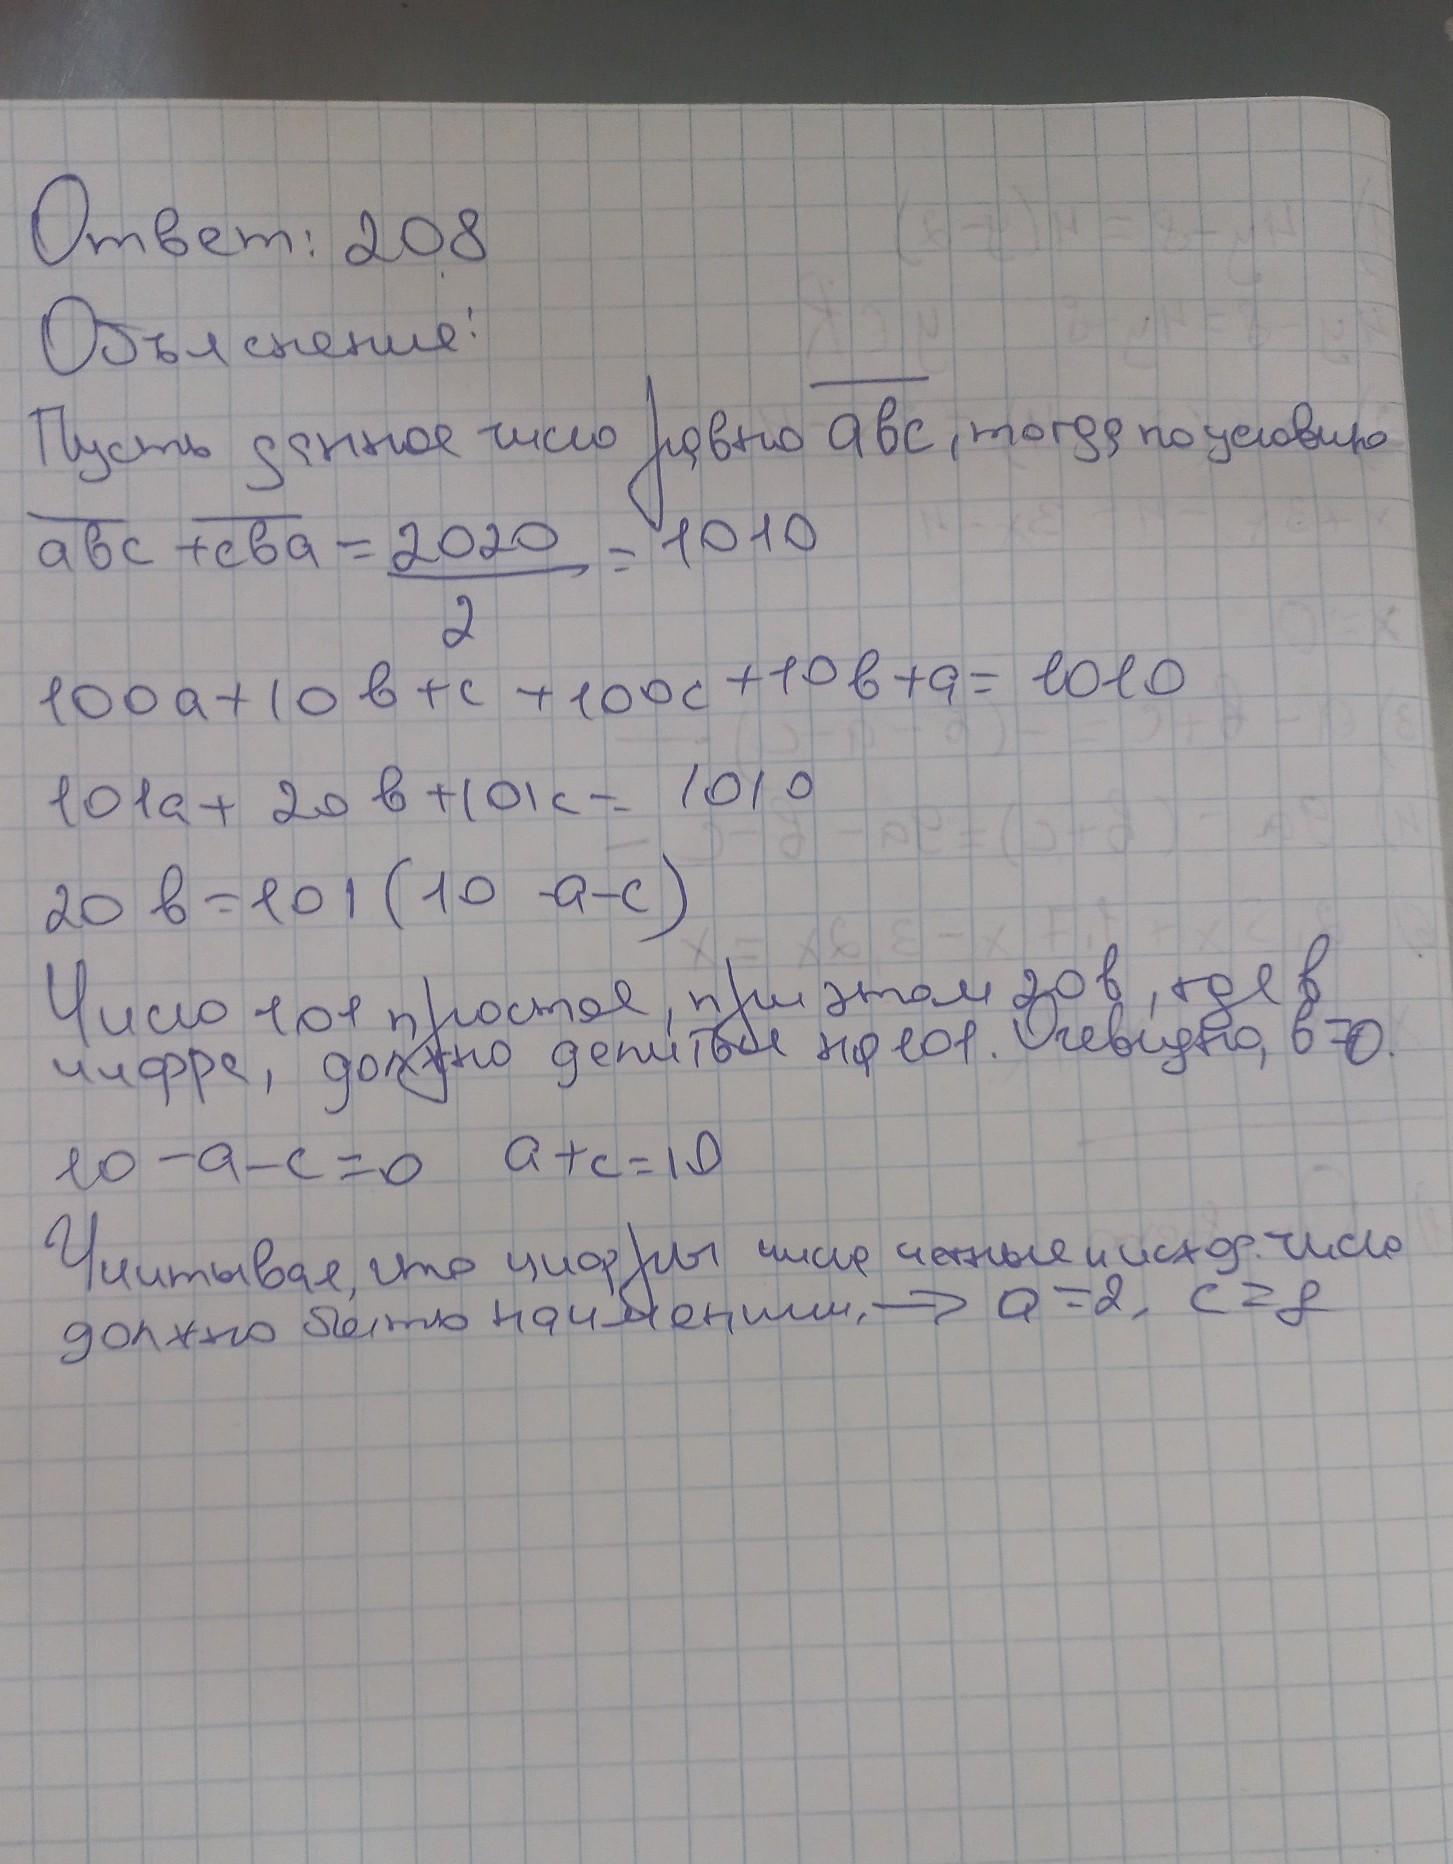 Ответ: 208
Объяснение:
Пусть данное число равно abc, тогда по условию
abc + cba = 2020/2 = 1010
100a+10b+c+100c+10b+a=1010
101a+20b+101c=1010
20b=101(10-a-c)
Число 101 простое, при этом 20b, где b
цифра, должно делиться на 101. Очевидно, b=0.
10-a-c=0 a+c=10
Учитывая, что цифры числа четные и исход. число
должно быть наименьшим, → a=2, c=8